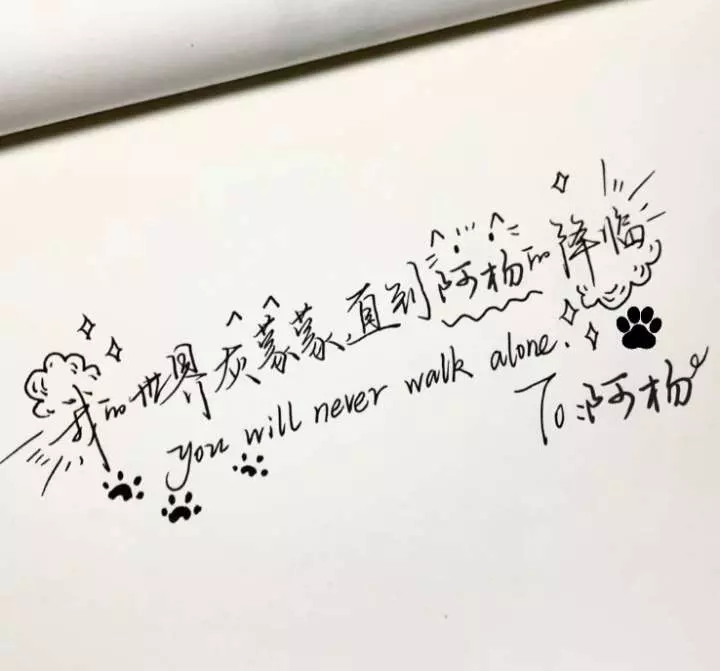 我的世界灰蒙蒙,直到阿杨的降临
you will never walk alone.
To:阿杨